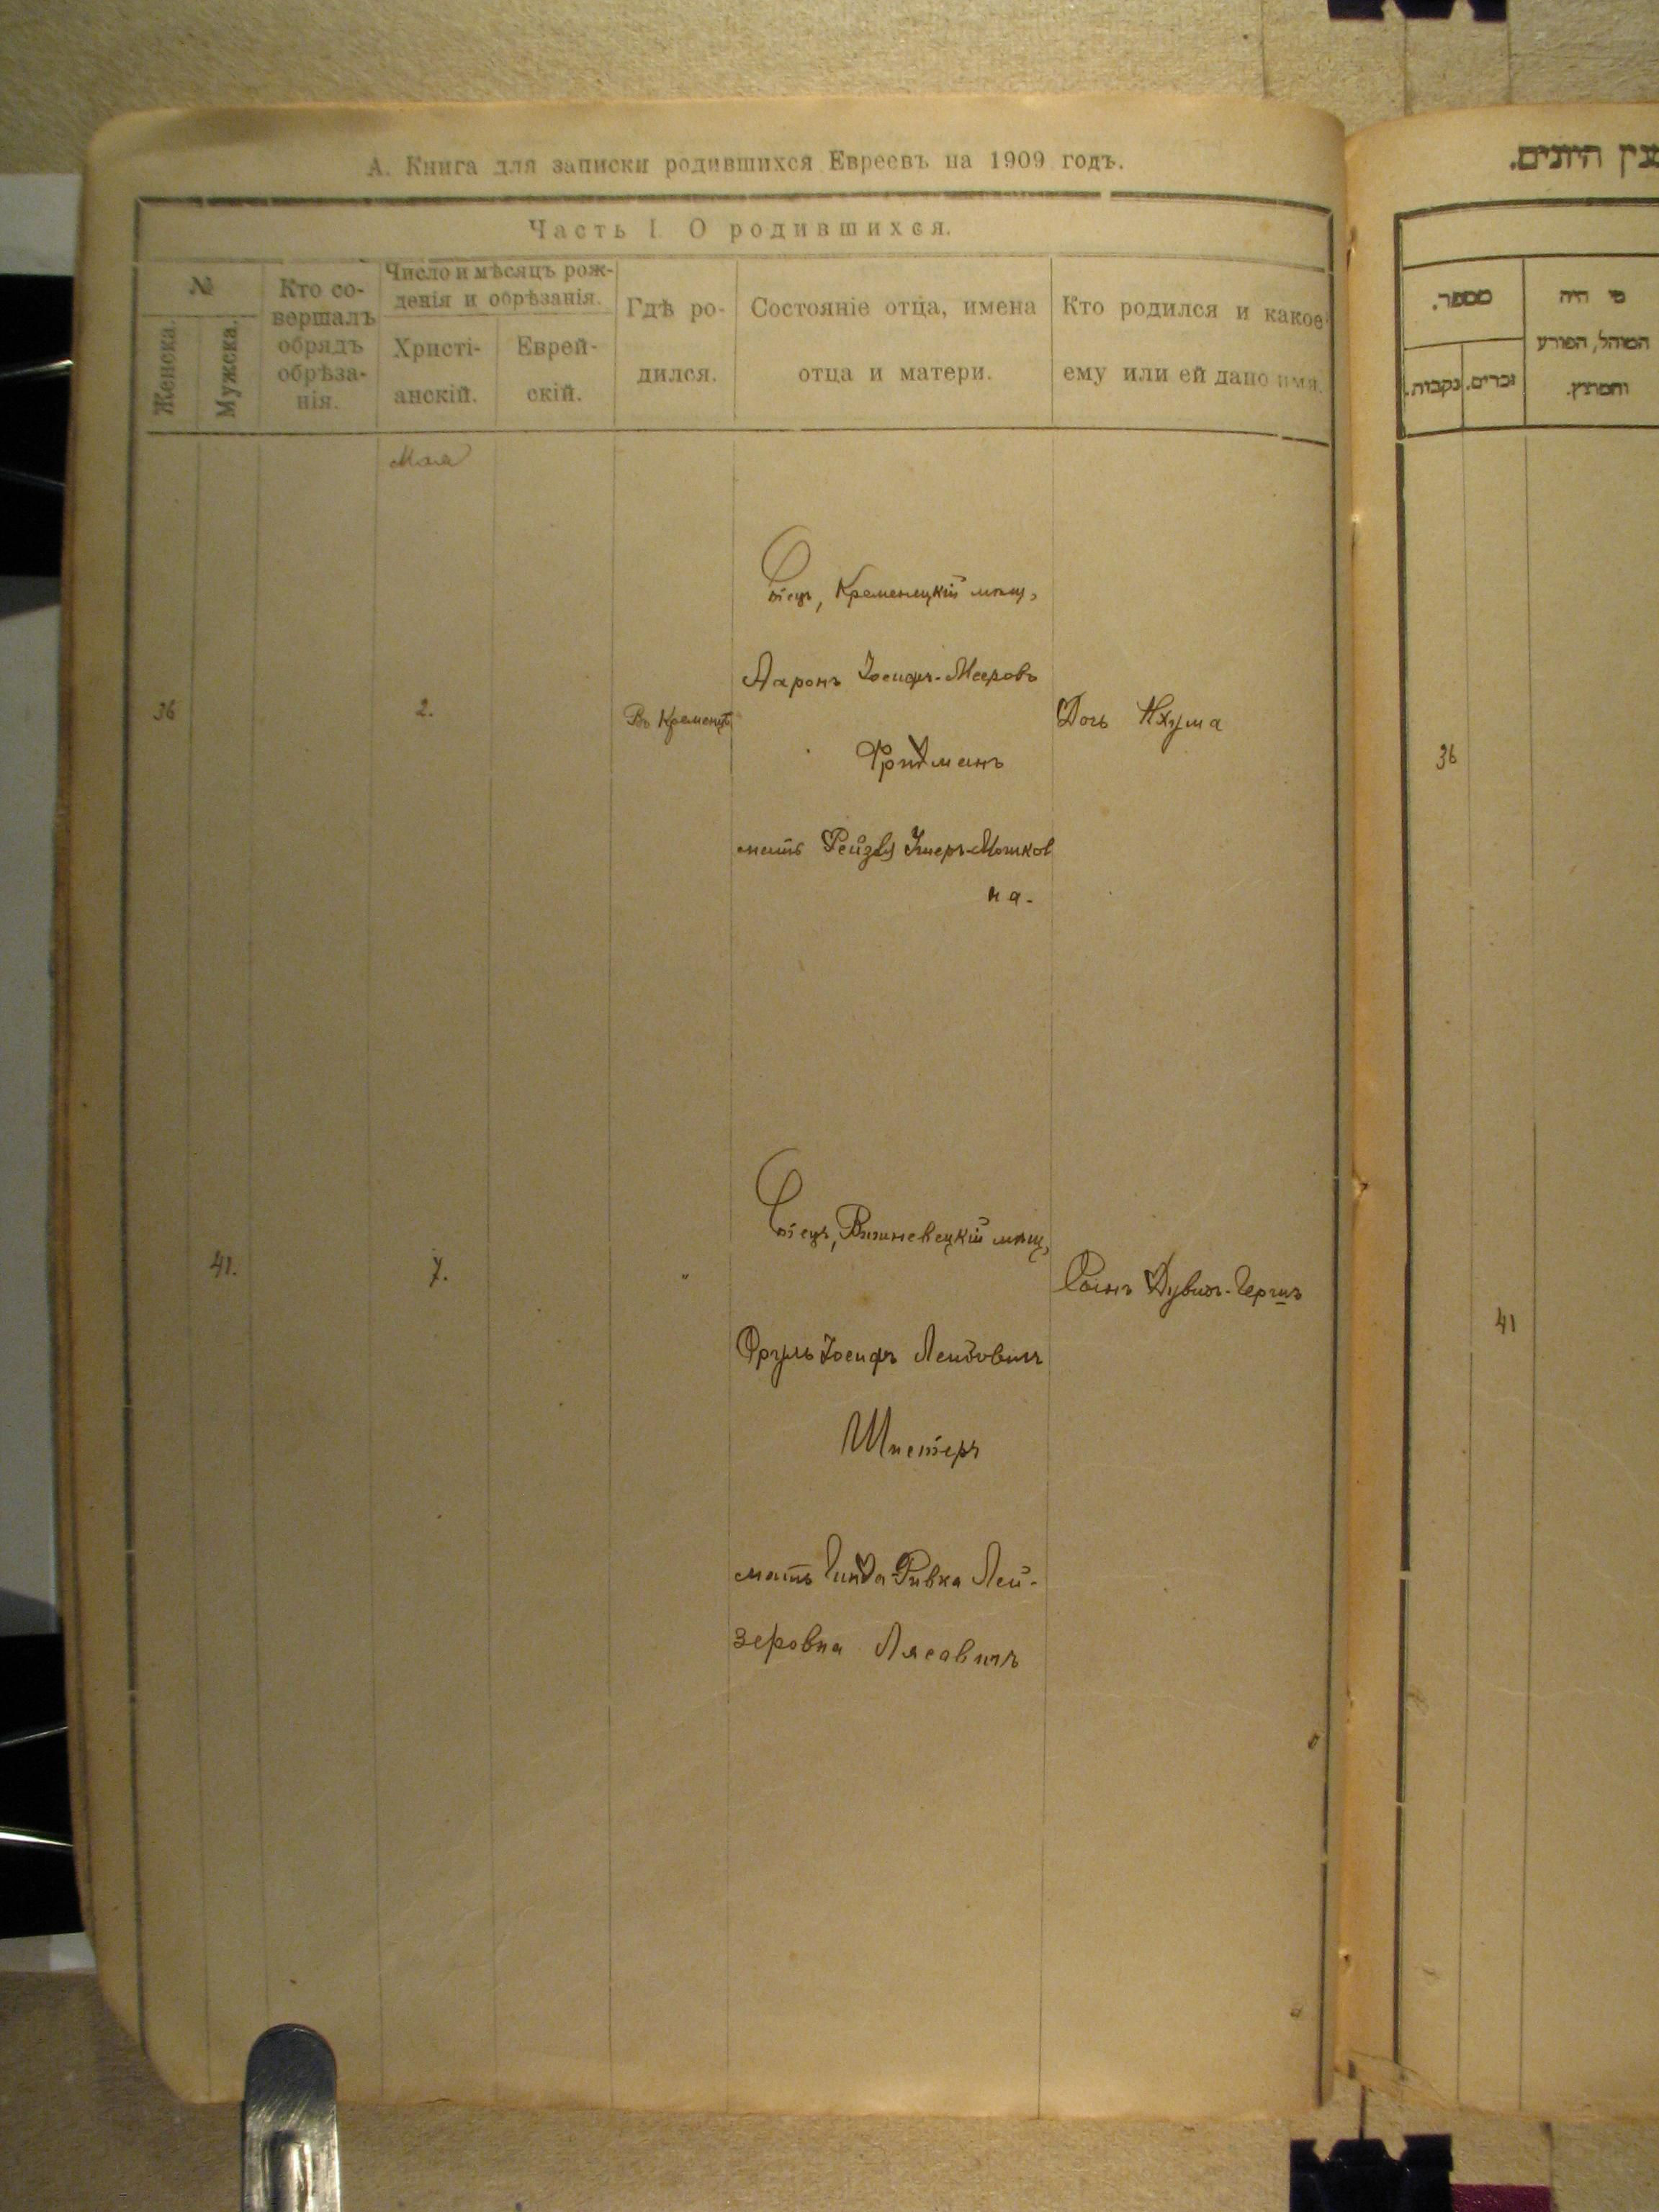 А. Книга для записки родившихся Евреевъ на 1909 годъ.
Часть I. О родившихся.
№
Женска.
Мужска.
Кто со-
вершалъ
обрядъ
обрѣза-
нія.
Число и мѣсяцъ рож-
денія и обрѣзанія.
Христі-
анскій.
Еврей-
скій.
Гдѣ ро-
дился.
Состояніе отца, имена
отца и матери.
Кто родился и какое
ему или ей дано имя.
Мая
36
2.
Въ Кременцѣ
Отецъ, Кременецкій мѣщ,
Ааронъ Іосифъ-Мееровъ
Фридманъ
мать Рейзя Мошков
на.
Дочь Нхума
41.
7.
"
Отецъ, Вишневецкій мѣщ,
Сруль Іосифъ Лейбовичъ
Шпетеръ
мать Гинда-Ривка Лей-
зеровна
Сынъ Дувидъ-Гершъ
מספר.
נקבות.
זכרים.
מי היה
המוהל, הפורע
והמוצץ.
36
41